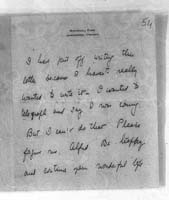 54
I have put off writing this
letter because I haven't really
wanted to write it. I wanted to
telegraph and say I was coming
But I can't do that Please
forgive me Alfred Be happy
and continue your wonderful life